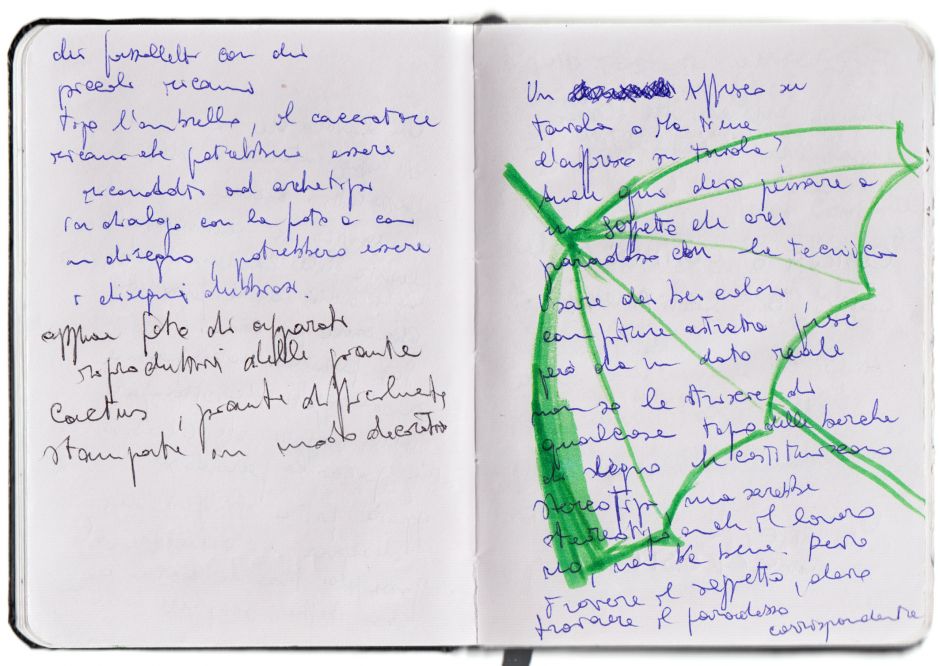 dei fazzoletti con dei
piccoli ricami
tipo l'ombrello, il cacciatore
ricamate potrebbero essere
ricondotti ad archetipi
in dialogo con la foto e con
un disegno, potrebbero essere
i disegni dubbiosi.
oppure foto di apparati
riproduttivi delle piante
Cactus, piante difficilmente
stampate in modo decorativo
Un Affresco su
tavola o
l'affresco su tavola?
Anche qui devo pensare a
un soggetto che crei
paradosso con la tecnica
Usare dei bei colori
con pitture astratte, forse
però da un dato reale
non so le strisce di
qualcosa tipo delle barche
di legno che costituiscono
stereotipi ma sarebbe
stereotipo anche il lavoro
no, non va bene. Devo
trovare il soggetto, devo
trovare il paradosso
corrispondente